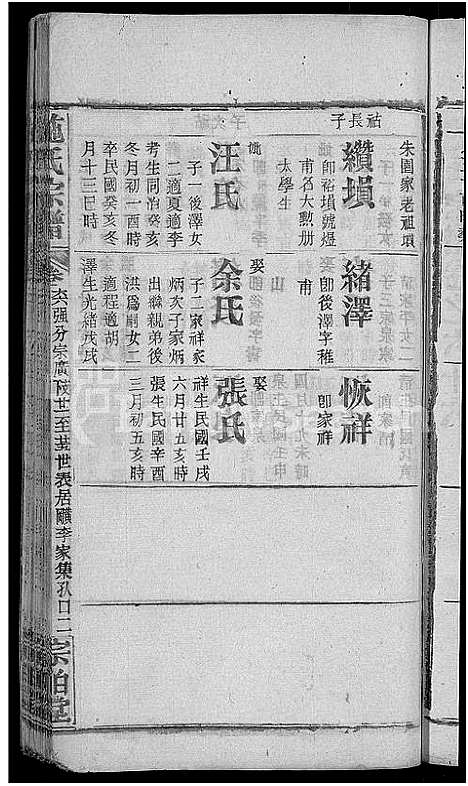 朱園家老祖項
祜長子
纘塤
即裕塤號煜
甫名大勲册
太學生
汪氏
子一後澤女
二適夏適李
考生同治癸亥
冬月初一酉時
卒民國癸亥冬
月十三日時
緒澤
即後澤字稚
甫
娶
余氏
子二家祥家
炳次子家炳
出繼親弟後
洪爲嗣女二
適程適胡
澤生光緒戊戌
恢祥
即家祥
娶
張氏
祥生民國壬戌
六月廿五亥時
張生民國辛酉
三月初五亥時
氏宗譜
居李家集